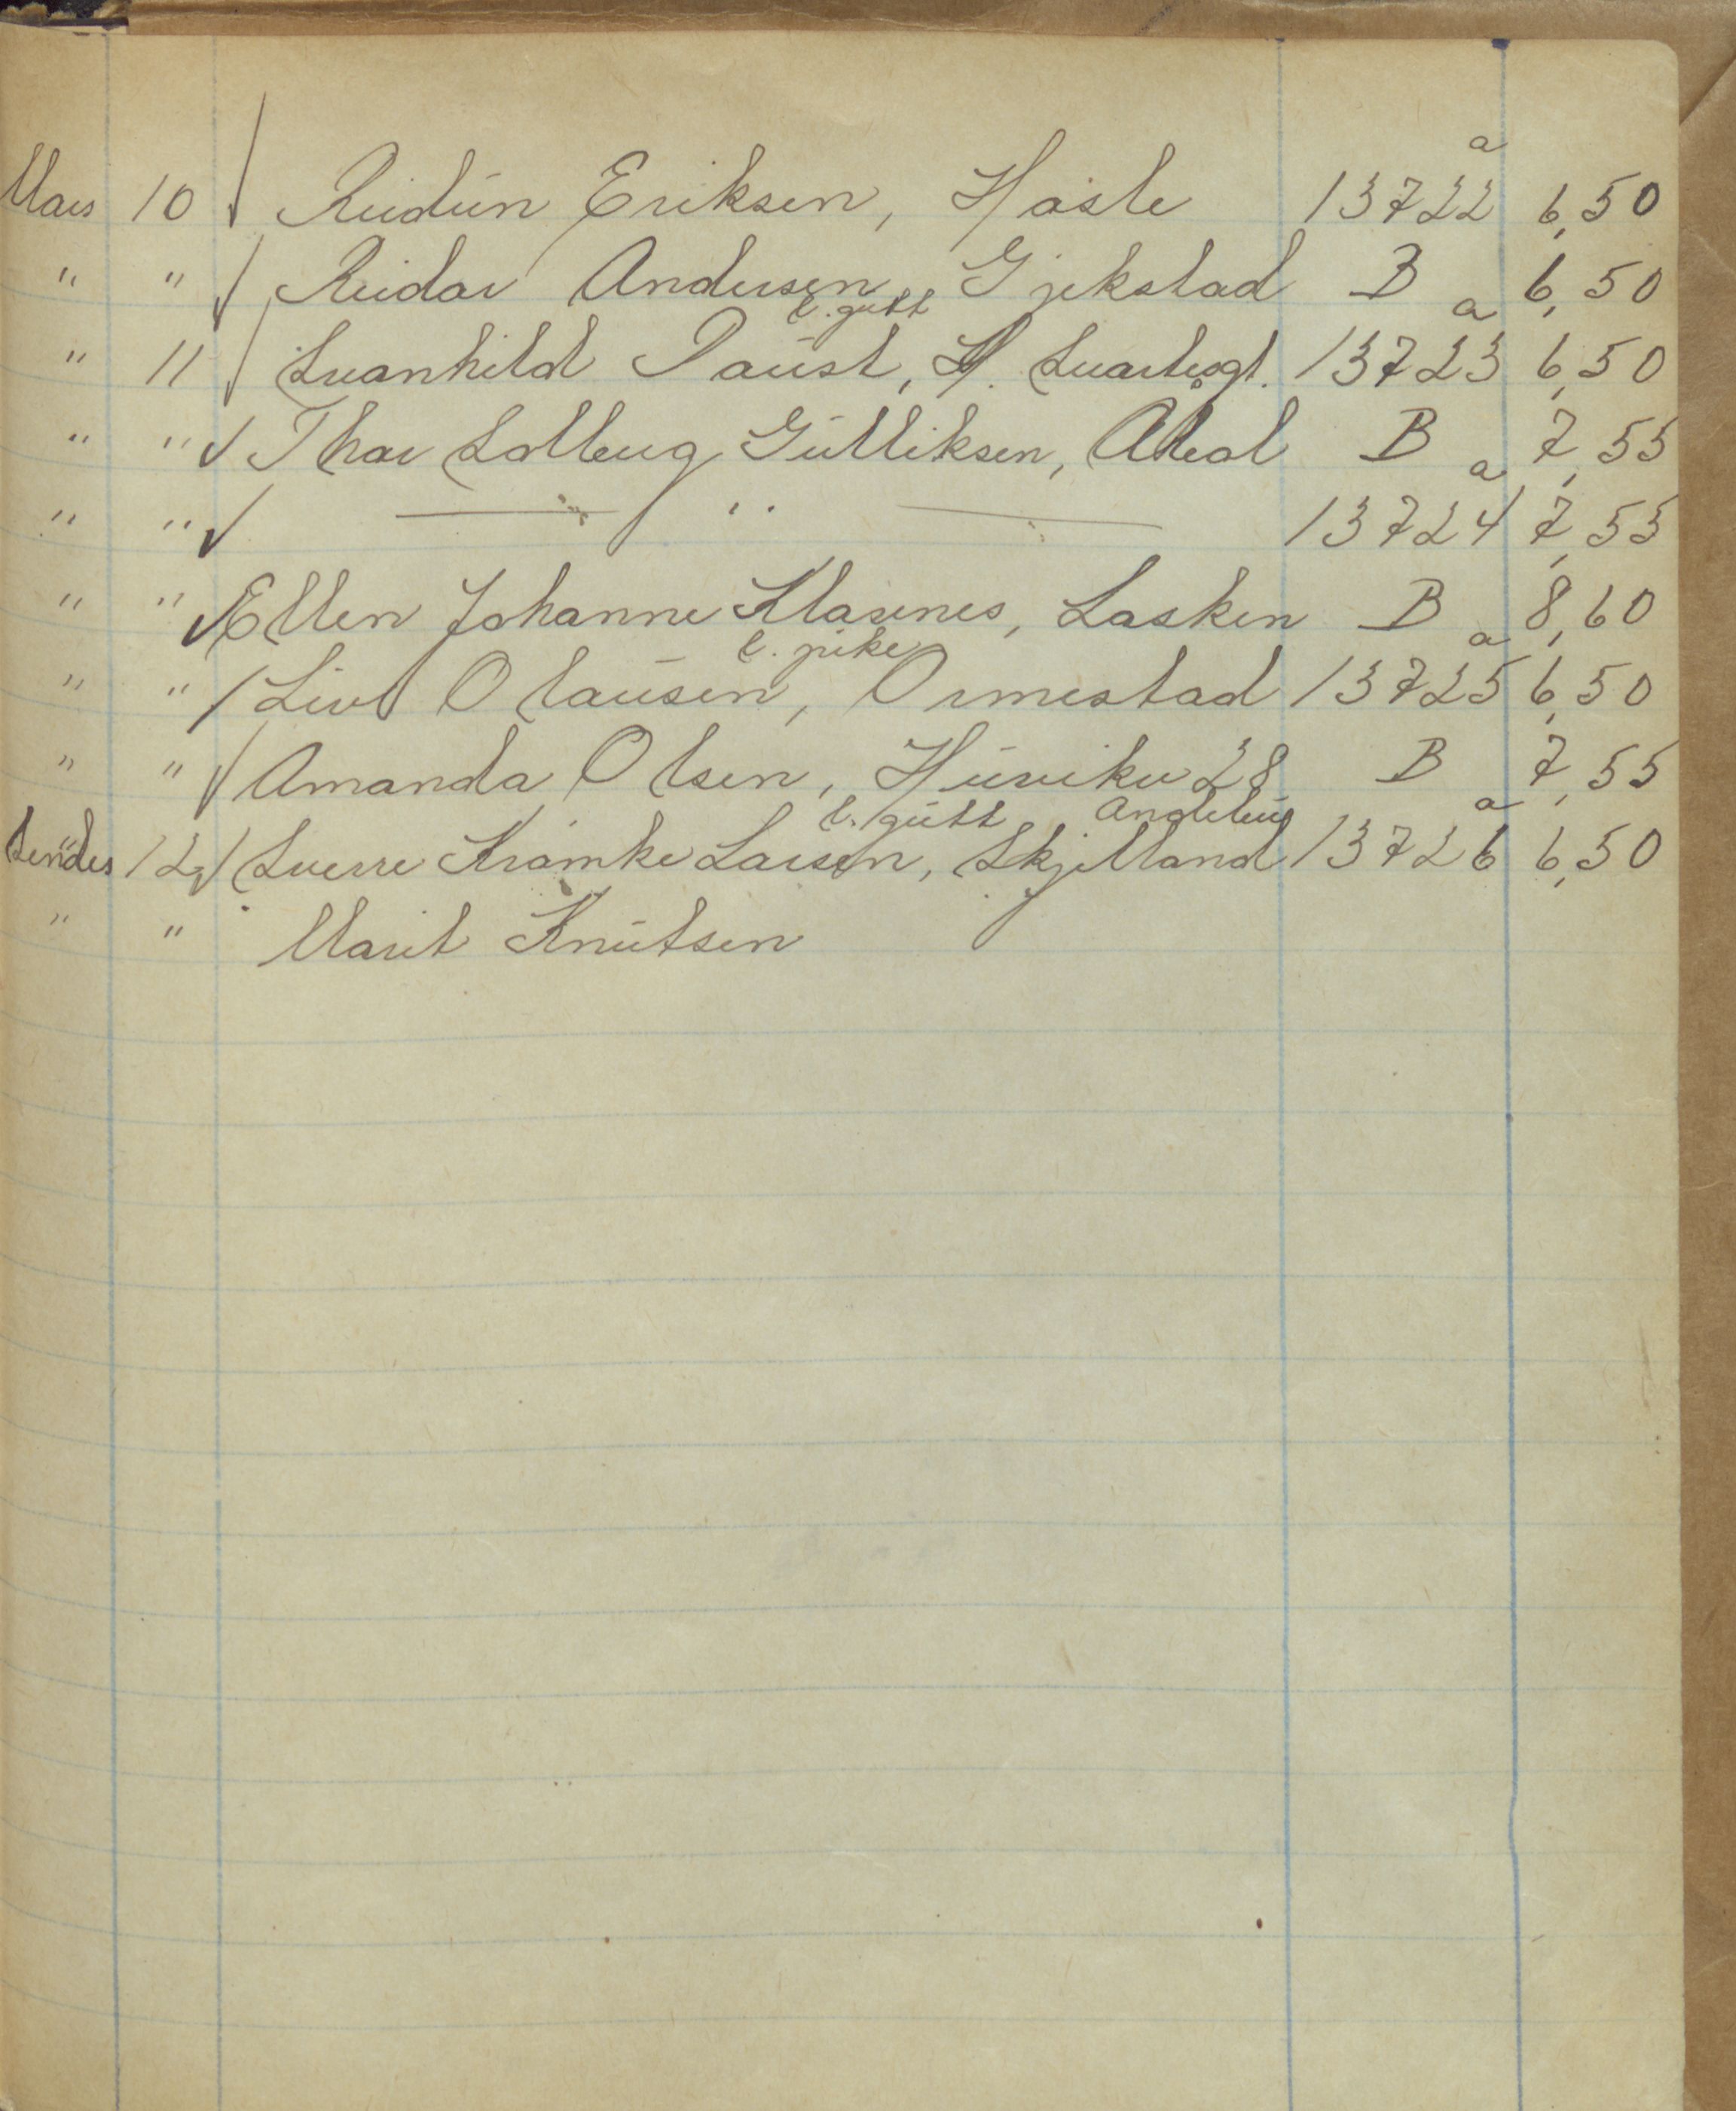 a
Mars 10 √ Reidun Eriksen, Hasle 13722 6,50
" " √ Reidar Andersen, Gjekstad B 6,50
l. gutt a
" 11 √ Svanhild Paust, St. 13723 6,50
" " √ Thor Solberg Gulliksen, B 7,55
a
" " √ — " — 13724 7,55
" " √ Ellen Johanne Klavenes, Lasken B 8,60
l. pike a
" " √ Liv Olausen, Ormestad 13725 6,50
" " √ Amanda Olsen, 28 B 7,55
l. gutt Andebu a
12 √ Sverre Kramke Larsen, Skjelland 13726 6,50
" " Marit Knutsen